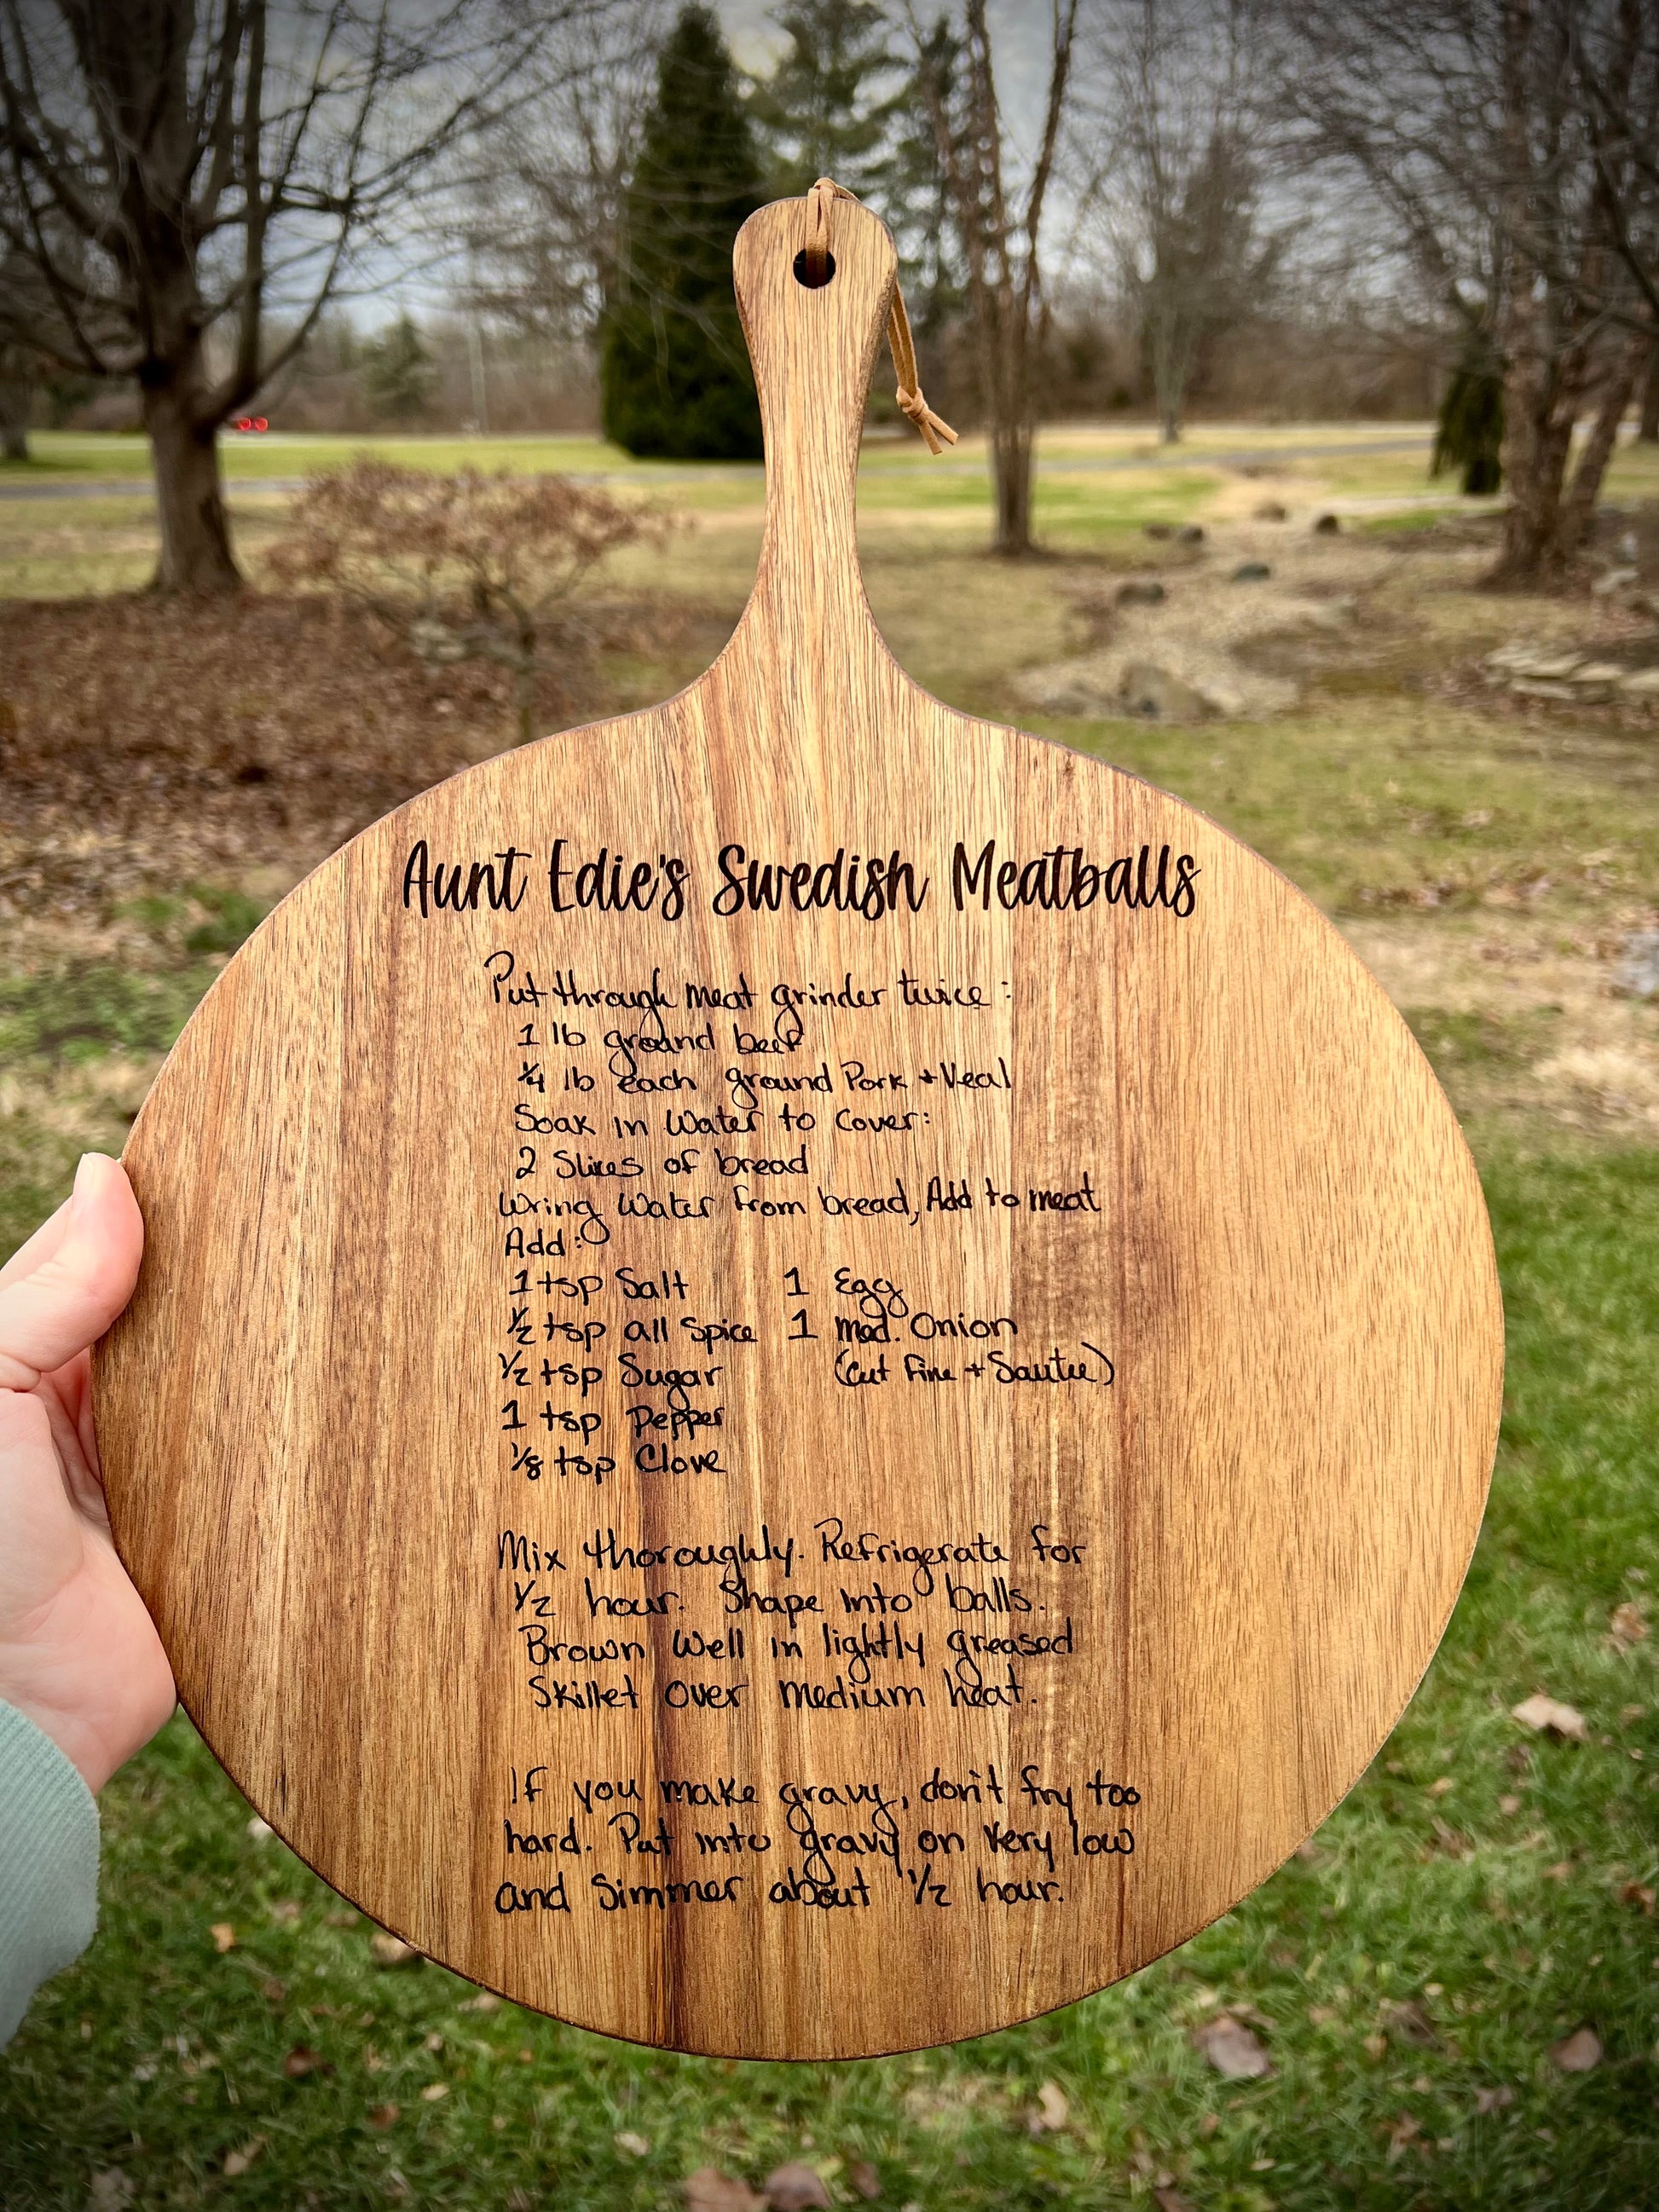 Aunt Edie's Swedish Meatballs
Put through meat grinder twice:
1 lb ground beef
1/4 lb each ground Pork + Veal
Soak in Water to Cover:
2 Slices of bread
Wring Water from bread, Add to meat
Add:
1 tsp Salt 1 Egg
1/2 tsp all Spice 1 med. Onion
1/2 tsp Sugar (Cut fine + Sautee)
1 tsp Pepper
1/8 tsp Clove
Mix thoroughly. Refrigerate for
1/2 hour. Shape into balls.
Brown Well in lightly greased
Skillet over medium heat.
If you make gravy, don't fry too
hard. Put into gravy on very low
and Simmer about 1/2 hour.